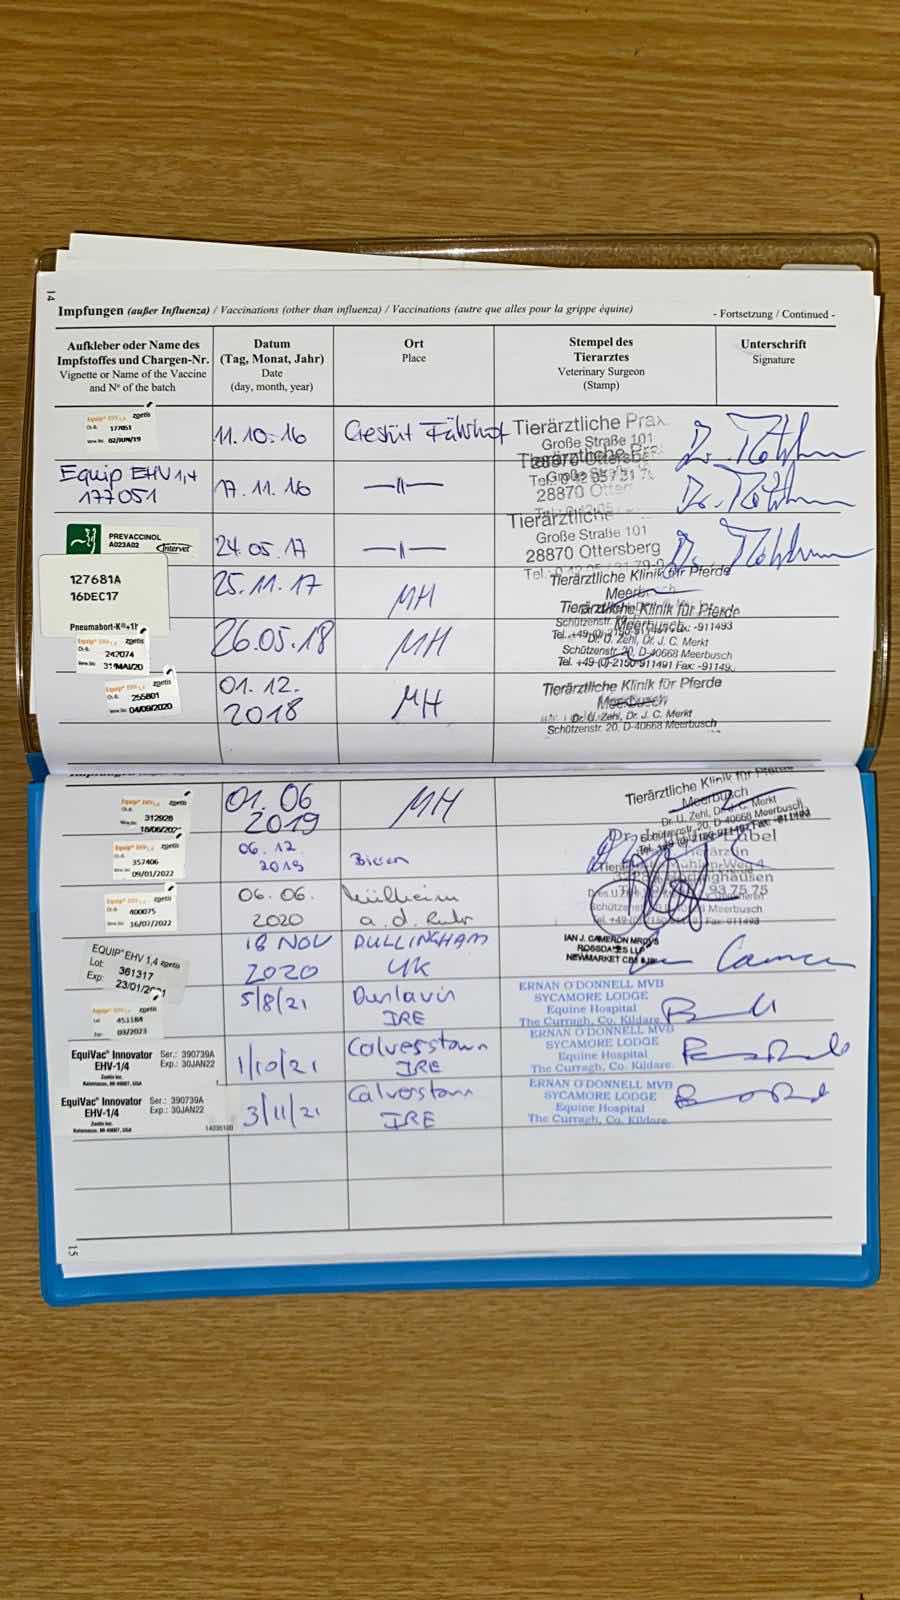 14
Impfungen (außer Influenza) / Vaccinations (other than influenza) / Vaccinations (autre que alles pour la grippe équine)
- Fortsetzung / Continued -
Aufkleber oder Name des Impfstoffes und Chargen-Nr.
Vignette or Name of the Vaccine and Nº of the batch
Datum (Tag, Monat, Jahr)
Date (day, month, year)
Ort
Place
Stempel des Tierarztes
Veterinary Surgeon (Stamp)
Unterschrift
Signature
Equip® EHV 1,4 zoetis
177051
02/JUN/19
11.10.16
Gestüt Fährhof
Tierärztliche Prax
Große Straße 101
Equip EHV 1,4
177051
17.11.16
—"—
Große Straße
28870
PREVACCINOL
A023A02
Intervet
24.05.17
—"—
Tierärztliche
Große Straße 101
28870 Ottersberg
127681A
16DEC17
Pneumabort-K®+1
25.11.17
MH
Tierärztliche Klinik für Pferde
Meerbusch
Equip® EHV 1,4 zoetis
242074
31/MAI/20
26.05.18
MH
Tierärztliche Klinik für Pferde
Meerbusch
Dr. U. Zehl, Dr. J. C. Merkt
Schützenstr. 20, D-40668 Meerbusch
Tel. +49-(0)-2150-911491 Fax: -91149
Equip® EHV 1,4 zoetis
255801
04/09/2020
01.12.
2018
MH
Tierärztliche Klinik für Pferde
Meerbusch
Dr. U. Zehl, Dr. J. C. Merkt
Schützenstr. 20, D-40668 Meerbusch
Equip® EHV 1,4 zoetis
312928
01.06
2019
MH
Tierärztliche Klinik für Pferde
Meerbusch
Dr. U. Zehl, Dr. J. C. Merkt
Equip® EHV 1,4 zoetis
357406
09/01/2022
06.12.
2019
Equip® EHV 1,4 zoetis
400075
16/07/2022
06.06.
2020
Mülheim
a. d. Ruhr
93 75 75
Meerbusch
EQUIP® EHV 1,4 zoetis
Lot: 361317
Exp: 23/01/
18 NOV
2020
DULLINGHAM
UK
IAN J. CAMERON MRCVS
ROSSDALES LLP
NEWMARKET
Equip® EHV 1,4 zoetis
451184
03/2023
5/8/21
Dunlavin
IRE
ERNAN O'DONNELL MVB
SYCAMORE LODGE
Equine Hospital
The Curragh, Co. Kildare
EquiVac® Innovator
EHV-1/4
Zoetis Inc.
Kalamazoo, MI 49007, USA
Ser.: 390739A
Exp.: 30JAN22
1/10/21
Calverstown
IRE
ERNAN O'DONNELL MVB
SYCAMORE LODGE
Equine Hospital
The Curragh, Co. Kildare.
EquiVac® Innovator
EHV-1/4
Zoetis Inc.
Kalamazoo, MI 49007, USA
Ser.: 390739A
Exp.: 30JAN22
3/11/21
Calverstown
IRE
ERNAN O'DONNELL MVB
SYCAMORE LODGE
Equine Hospital
The Curragh, Co. Kildare
15